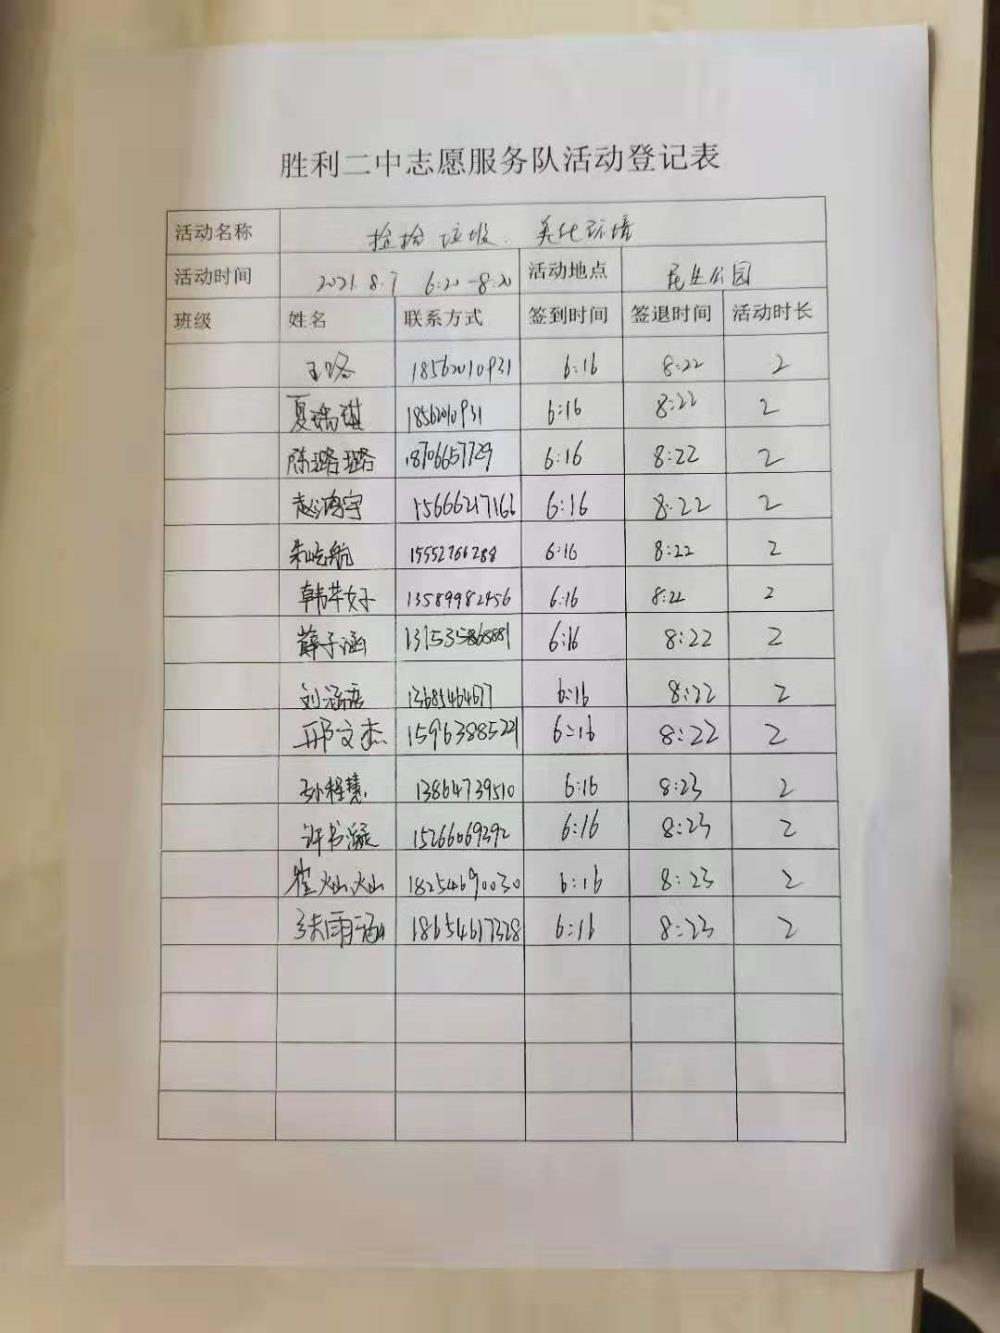 胜利二中志愿服务队活动登记表
活动名称 捡拾垃圾. 美化环境
活动时间 2021.8.7 6:20-8:20 活动地点 民生公园
班级 姓名 联系方式 签到时间 签退时间 活动时长
王 18562010931 6:16 8:22 2
夏瑞琪 18562010931 6:16 8:22 2
陈璐璐 18706657729 6:16 8:22 2
赵鸿宇 15666217166 6:16 8:22 2
朱屹航 15552766288 6:16 8:22 2
韩苹好 13589982456 6:16 8:22 2
薛子涵 6:16 8:22 2
刘涵语 6:16 8:22 2
邢文杰 15963885221 6:16 8:22 2
孙程慧 13864739510 6:16 8:23 2
许书凝 15266069292 6:16 8:23 2
崔灿灿 18254690030 6:16 8:23 2
张雨涵 18654617328 6:16 8:23 2